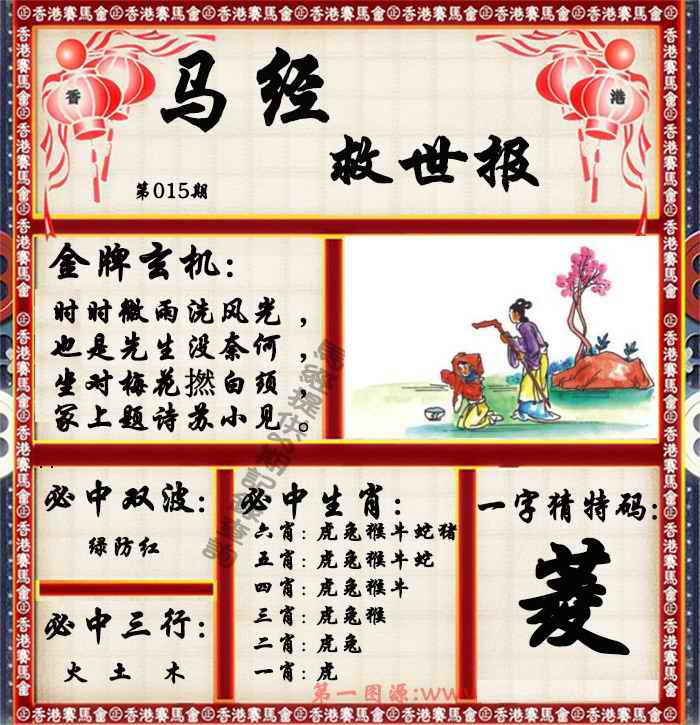 香港賽馬會 正 香港賽馬會 正 香港賽馬會 正 香港賽馬會 正 香港賽馬會
香
港
马经
救世报
第015期
金牌玄机：
时时微雨洗风光，
也是先生没奈何，
坐对梅花撚白须，
冢上题诗苏小见。
必中双波：
绿防红
必中三行：
火 土 木
必中生肖：
六肖：虎兔猴牛蛇猪
五肖：虎兔猴牛蛇
四肖：虎兔猴牛
三肖：虎兔猴
二肖：虎兔
一肖：虎
一字猜特码：
菱
第一图源:www